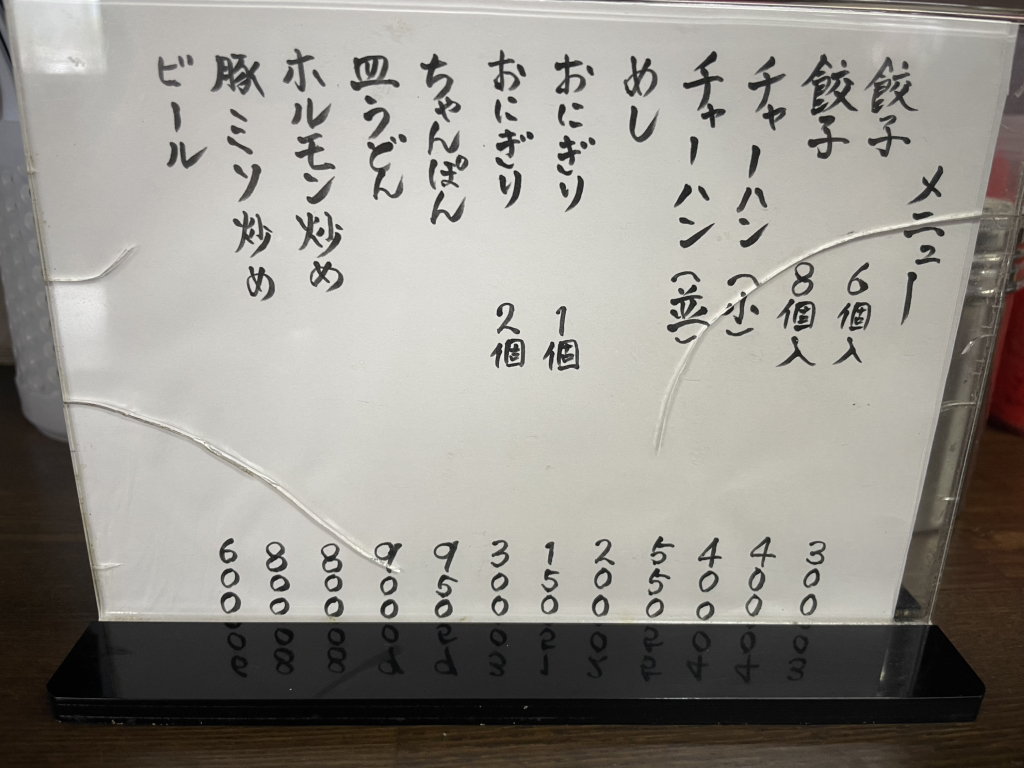 メニュー
餃子 6個入 300
餃子 8個入 400
チャーハン(小) 400
チャーハン(並) 550
めし 200
おにぎり 1個 150
おにぎり 2個 300
ちゃんぽん 950
皿うどん 900
ホルモン炒め 800
豚ミソ炒め 800
ビール 600